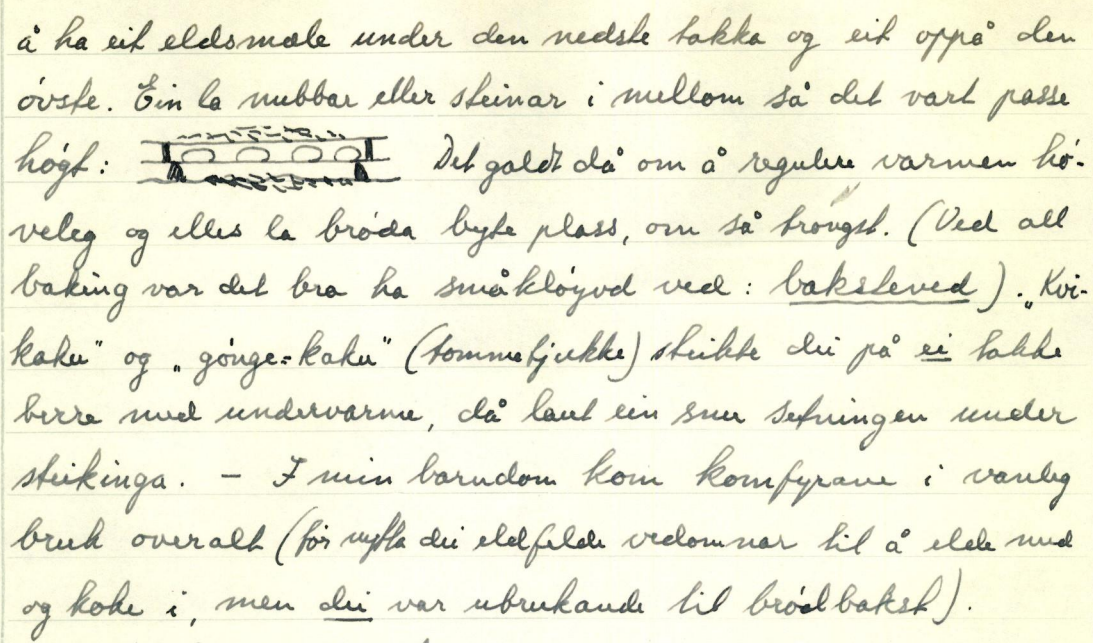 å ha eit eldsmæle under den nedste takka og eit oppå den
óvste. Ein la nubbar eller steinar i mellom så det vart passe
hógt: Det galdt då om å regulere varmen hó-
veleg og elles la bróda byte plass, om så tróngst. (Ved all
baking var det bra ha småklóyvd ved: baksteved). „Kvi-
kaku" og „gónge=kaku" (tommetjukke) steikte dei på ei takke
berre med undervarme, då laut ein snu setningen under
steikinga. – I min barndom kom komfyrane i vanleg
bruk overalt (fór nytta dei eldfelde vedomnar til å elde med
og koke i, men dei var ubrukande til bródbakst).